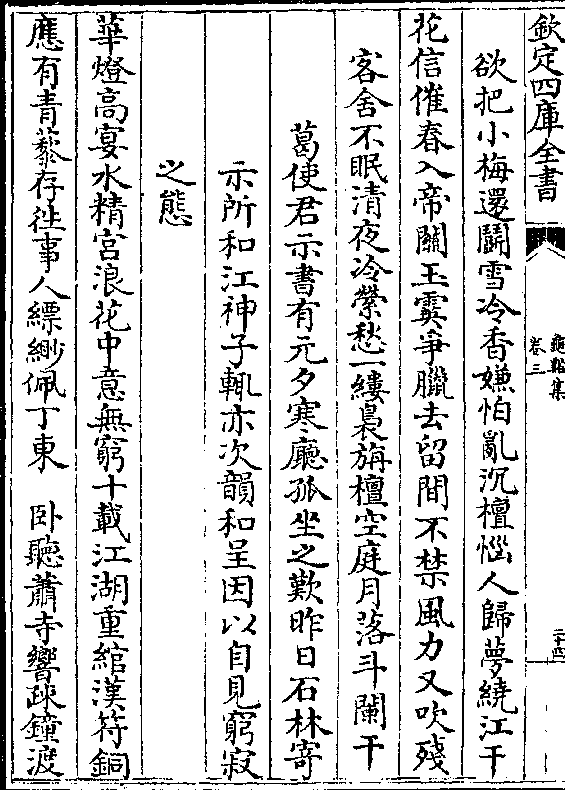 欽定四庫全書
龜谿集
卷三
二十四
欲把小梅還鬭雪冷香嫌怕亂沉檀惱人歸夢繞江干
花信催春入帝關玉霙爭臘去留間不禁風力又吹殘
客舍不眠清夜冷縈愁一縷裊旃檀空庭月落斗闌干
葛使君示書有元夕寒廳孤坐之歎昨日石林寄
示所和江神子輒亦次韻和呈因以自見窮寂
之態
華燈高宴水精宮浪花中意無窮十載江湖重綰漢符銅
應有青藜存徃事人縹緲佩丁東　卧聽蕭寺響疎鐘渡